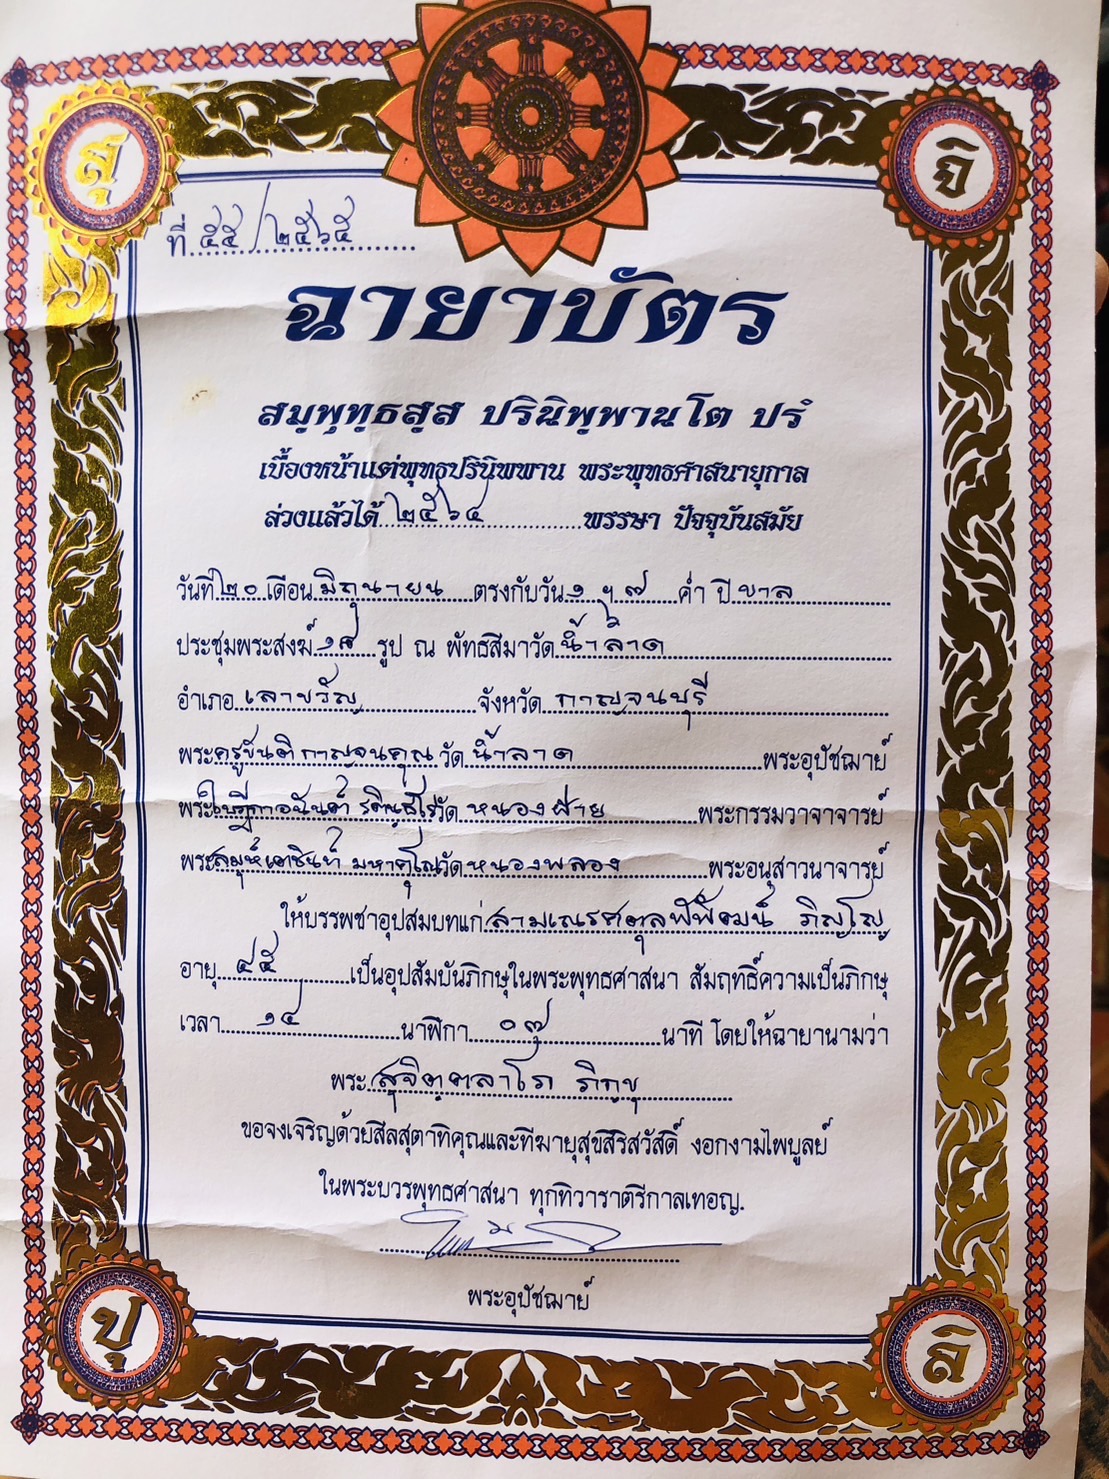 สุ
จิ
ที่ ๕๕/๒๕๖๕
ฉายาบัตร
สมฺพุทฺธสฺส ปรินิพฺพานโต ปรํ
เบื้องหน้าแต่พุทธปรินิพพาน พระพุทธศาสนายุกาล
ล่วงแล้วได้ ๒๕๖๔ พรรษา ปัจจุบันสมัย
วันที่ ๒๐ เดือน มิถุนายน ตรงกับวัน ๑ ฯ ๗ ค่ำ ปี ขาล
ประชุมพระสงฆ์ รูป ณ พัทธสีมาวัด น้ำลาด
อำเภอ เลาขวัญ จังหวัด กาญจนบุรี
พระครูขันติกาญจนคุณ วัด น้ำลาด พระอุปัชฌาย์
พระใบฎีกาอนันต์ วัด หนองฝ้าย พระกรรมวาจาจารย์
พระสมุห์เตชินท์ มหาคุโณ วัด หนองพลอง พระอนุสาวนาจารย์
ให้บรรพชาอุปสมบทแก่ สามเณรศตุลพิพัฒน์ ภิญโญ
อายุ ๔๕ เป็นอุปสัมบันภิกษุในพระพุทธศาสนา สัมฤทธิ์ความเป็นภิกษุ
เวลา ๑๔ นาฬิกา ๐๓ นาที โดยให้ฉายานามว่า
พระ สุจิตฺตลาโภ ภิกฺขุ
ขอจงเจริญด้วยสีลสุตาทิคุณและทีฆายุสุขสิริสวัสดิ์ งอกงามไพบูลย์
ในพระบวรพุทธศาสนา ทุกทิวาราตรีกาลเทอญ.
พระอุปัชฌาย์
ปุ
ลิ